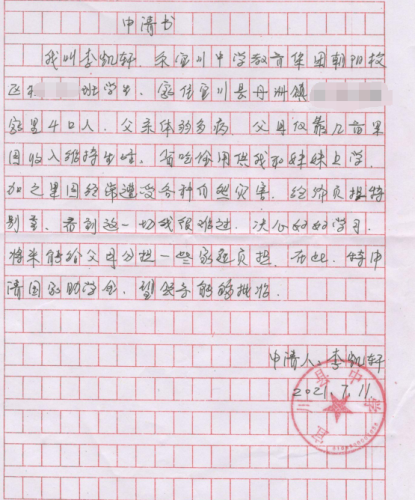 申请书
我叫李凯轩，系宜川中学教育集团朝阳校
区 班学生，家住宜川县丹州镇
家里4口人，父亲体弱多病，父母仅靠几亩果
园收入维持生计，省吃俭用供我和妹妹上学，
加之果园经常遭受各种自然灾害，经济负担特
别重，看到这一切我很难过，决心好好学习，
将来能给父母分担一些家庭负担，为此，特申
请国家助学金，望能够批准。
申请人：李凯轩
2021.7.11
宜川县中学